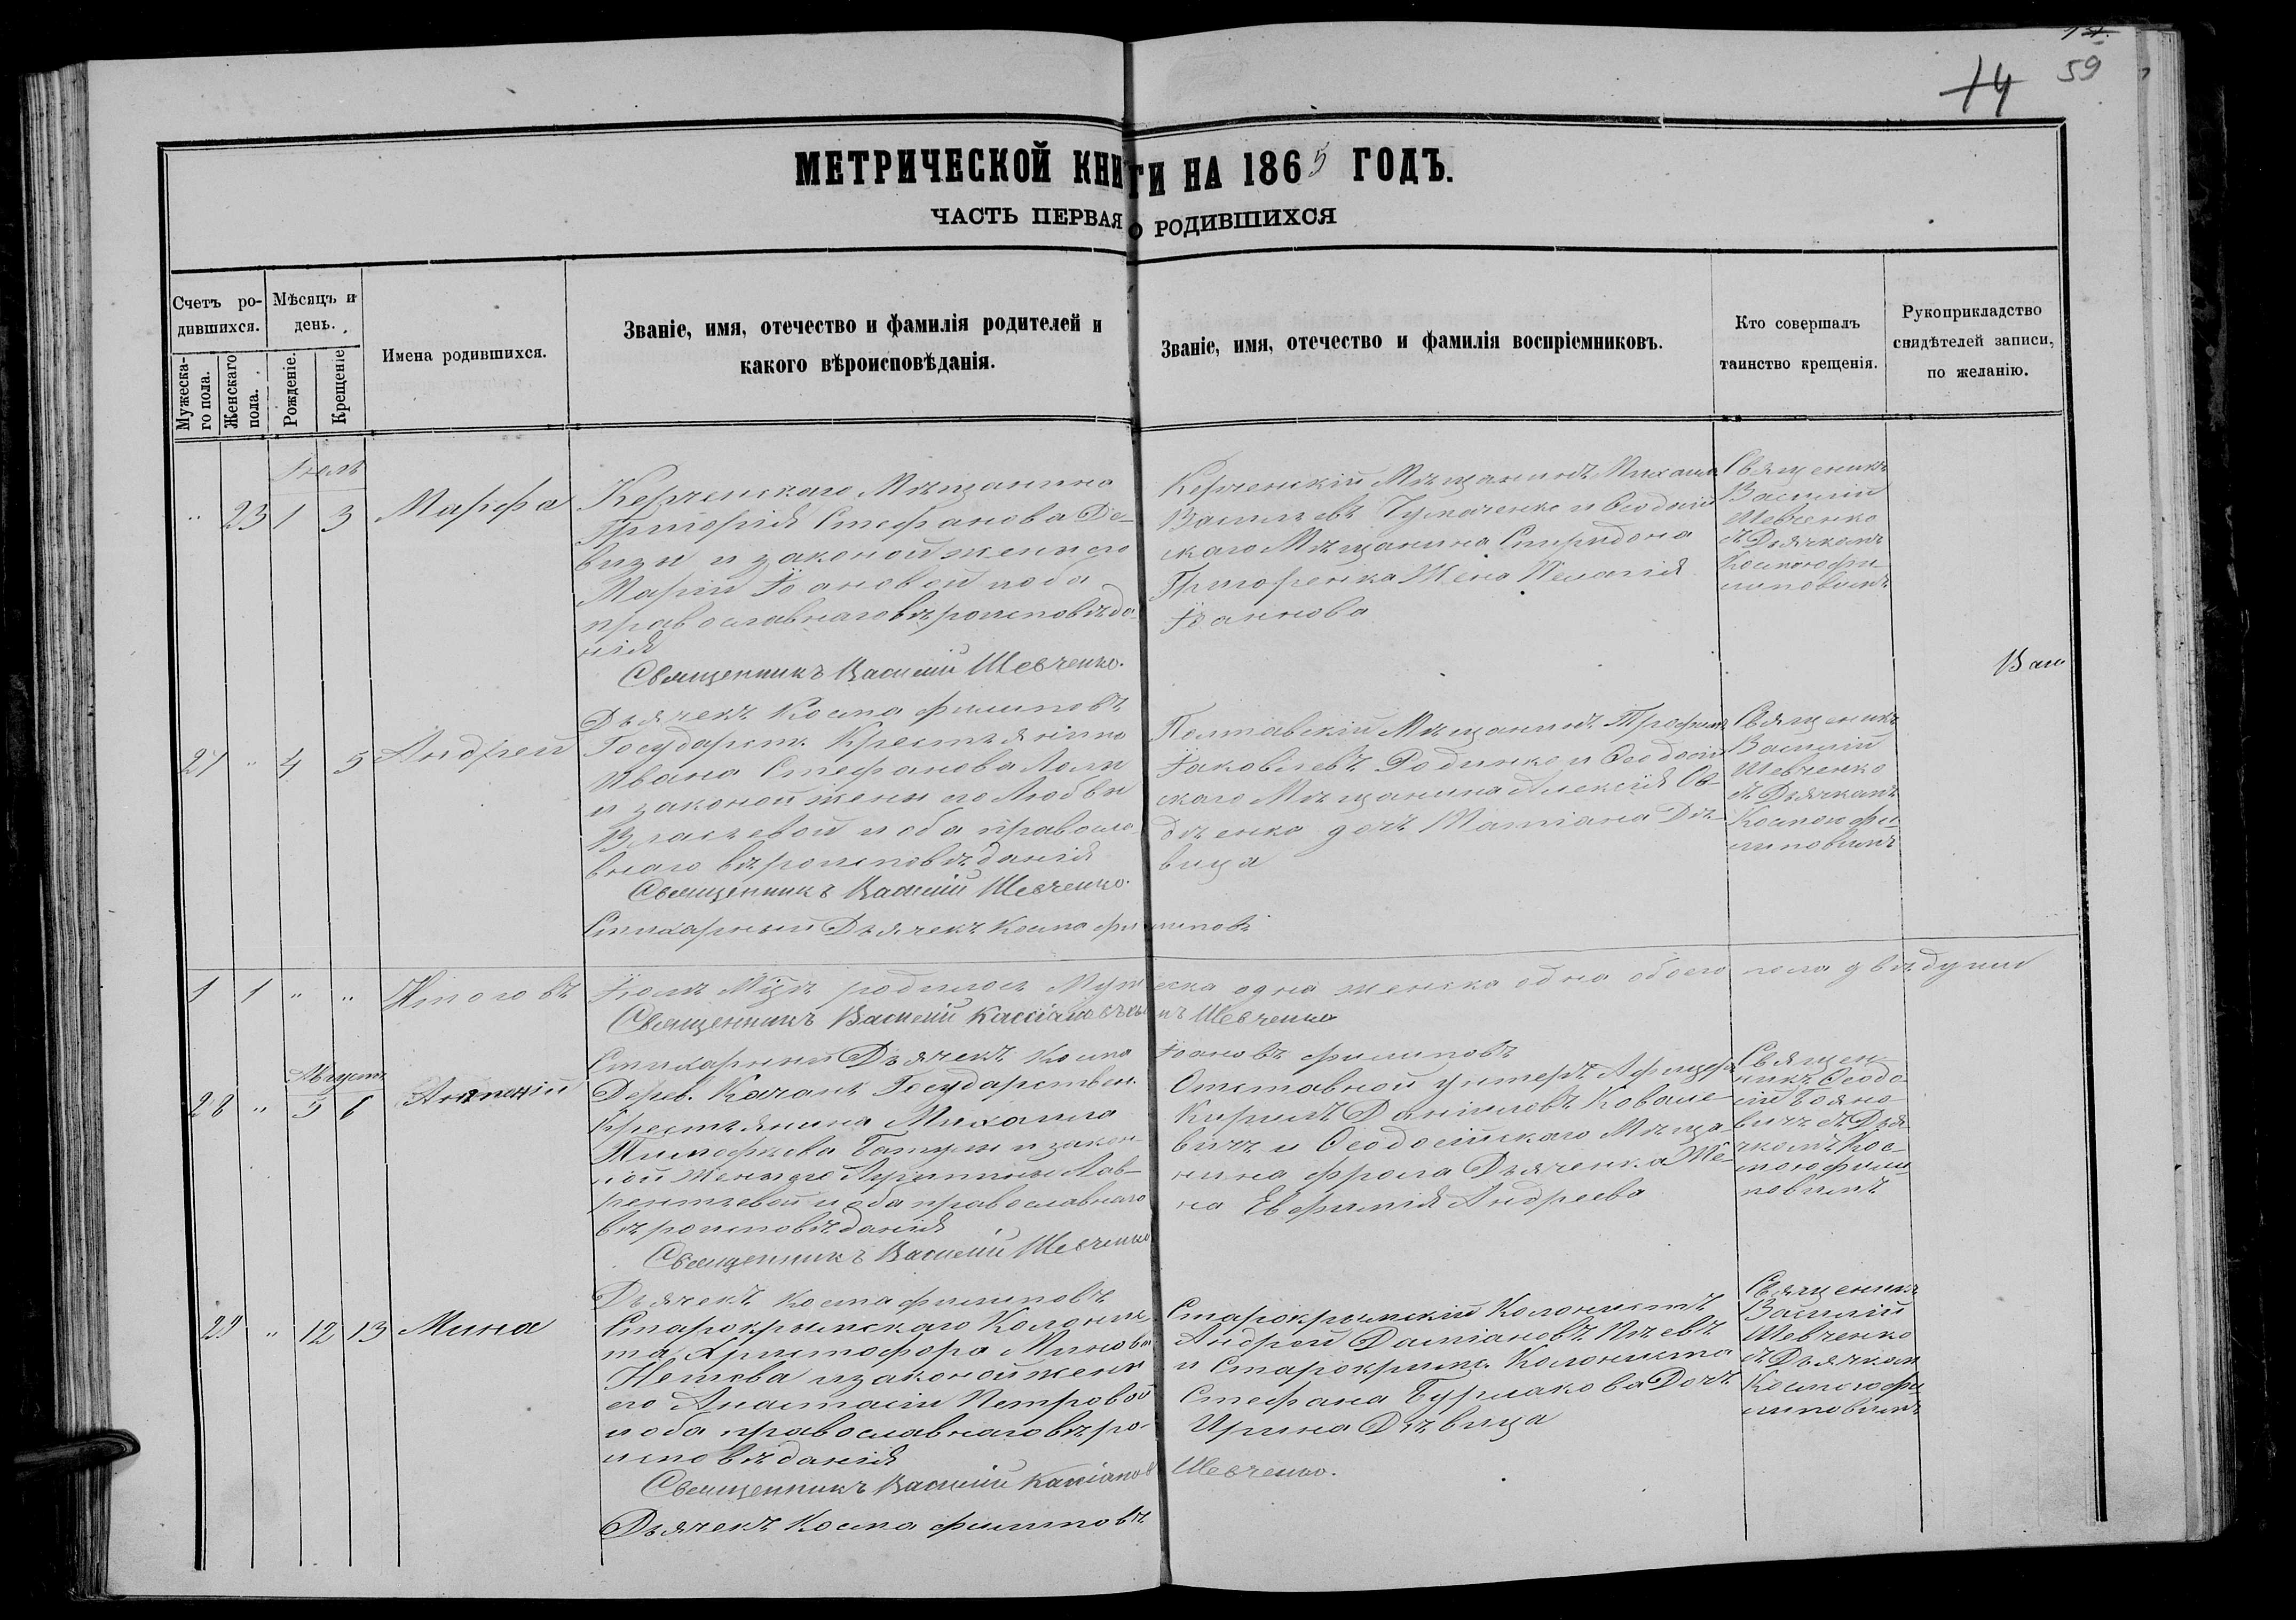 14 59
МЕТРИЧЕСКОЙ КНИГИ НА 1865 ГОДЪ.
ЧАСТЬ ПЕРВАЯ О РОДИВШИХСЯ
Счетъ ро-
дившихся.
Мужеска-
го пола.
Женскаго
пола.
Мѣсяцъ и
день.
Рожденіе.
Крещеніе
Имена родившихся.
Званіе, имя, отечество и фамилія родителей и
какого вѣроисповѣданія.
Званіе, имя, отечество и фамилія воспріемниковъ.
Кто совершалъ
таинство крещенія.
Рукоприкладство
свидѣтелей записи,
по желанію.
Іюль
" 23 1 3 Марфа
Керченскаго Мѣщанина
Григорія Стефанова
и законой жены его
Маріи Іоановой и оба
православнаго вѣроисповѣда-
нія
Священникъ Василій Шевченко.
Дьячекъ Косма Филиповъ
Керченскій Мѣщанинъ Михаилъ
Васильевъ Чумаченко и Феодосій
скаго Мѣщанина Спиридона
Григоренка Жена Пелагія
Іоаннова
Священикъ
Василій
Шевченко
съ Дьячкомъ
Космою Фи-
липовымъ
Вас
27 " 4 5 Андрей
Государст. Крестьянина
Ивана Стефанова
и законой жены его Любви
Власьевой и оба правосла-
внаго вѣроисповѣданія
Священникъ Василій Шевченко.
Стихарный Дьячекъ Косма Филиповъ
Полтавскій Мѣщанинъ Трофимъ
Іаковлевъ Родинко и Феодосій
скаго Мѣщанина Алексія Ов-
дѣенко дочь Матіана Дѣ-
вица
Священикъ
Василій
Шевченко
съ Дьячкомъ
Космою Фи-
липовымъ
1 1 " " Итого въ Іюлѣ Мцѣ родилось Мужеска одна женска одна обоего пола двѣ души
Священникъ Василій Кассіановъ сынъ Шевченко
Стихарный Дьячекъ Косма Іоановъ Филиповъ
Августъ
28 " 5 6
Дерев. Качанъ Государствен.
Крестьянина Михаила
Тимофѣева и закон-
ной жены его Лав-
рентьевой и оба православнаго
вѣроисповѣданія
Священникъ Василій Шевченко
Дьячекъ Косма Филиповъ
Отставной унтеръ Афицеръ
Кирилъ Даніиловъ Ковале-
вичъ и Феодосійскаго Мѣща-
нина Фрола Дьяченка Же-
на Евфимія Андреева
Священ-
никъ Феодо-
сій Бояно-
вичъ съ Дья-
чкомъ Кос-
мою Фили-
повымъ
29 " 12 13 Мина
Старокрымскаго Колонис-
та Христофора Минова
Нетова и законой жены
его Анастасіи Петровой
и оба православнаго вѣро-
исповѣданія
Священникъ Василій Кассіановъ Шевченко.
Дьячекъ Косма Филиповъ
Старокрымскій Колонистъ
Андрей Даміановъ
и Старокрымс. Колониста
Стефана Бурлакова Дочь
Ирина Дѣвица
Священикъ
Василій
Шевченко
съ Дьячкомъ
Космою Фи-
липовымъ